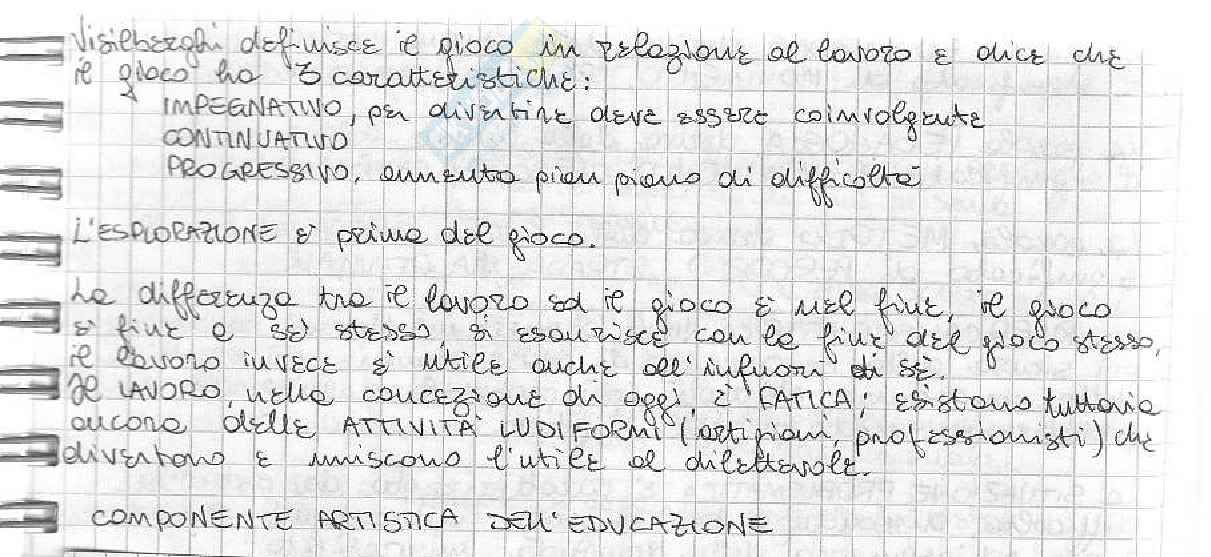 Visilberghi definisce il gioco in relazione al lavoro e dice che
il gioco ha 3 caratteristiche:
IMPEGNATIVO, per divertire deve essere coinvolgente
CONTINUATIVO
PROGRESSIVO, aumenta pian piano di difficoltà
L'ESPLORAZIONE è prima del gioco.
La differenza tra il lavoro ed il gioco è nel fine, il gioco
è fine a se stesso, si esaurisce con la fine del gioco stesso,
il lavoro invece è utile anche all'infuori di sè.
Il LAVORO, nella concezione di oggi, è FATICA; esistono tuttavia
ancora delle ATTIVITÀ LUDIFORMI (artigiani, professionisti) che
divertono e uniscono l'utile al dilettevole.
COMPONENTE ARTISTICA DELL'EDUCAZIONE